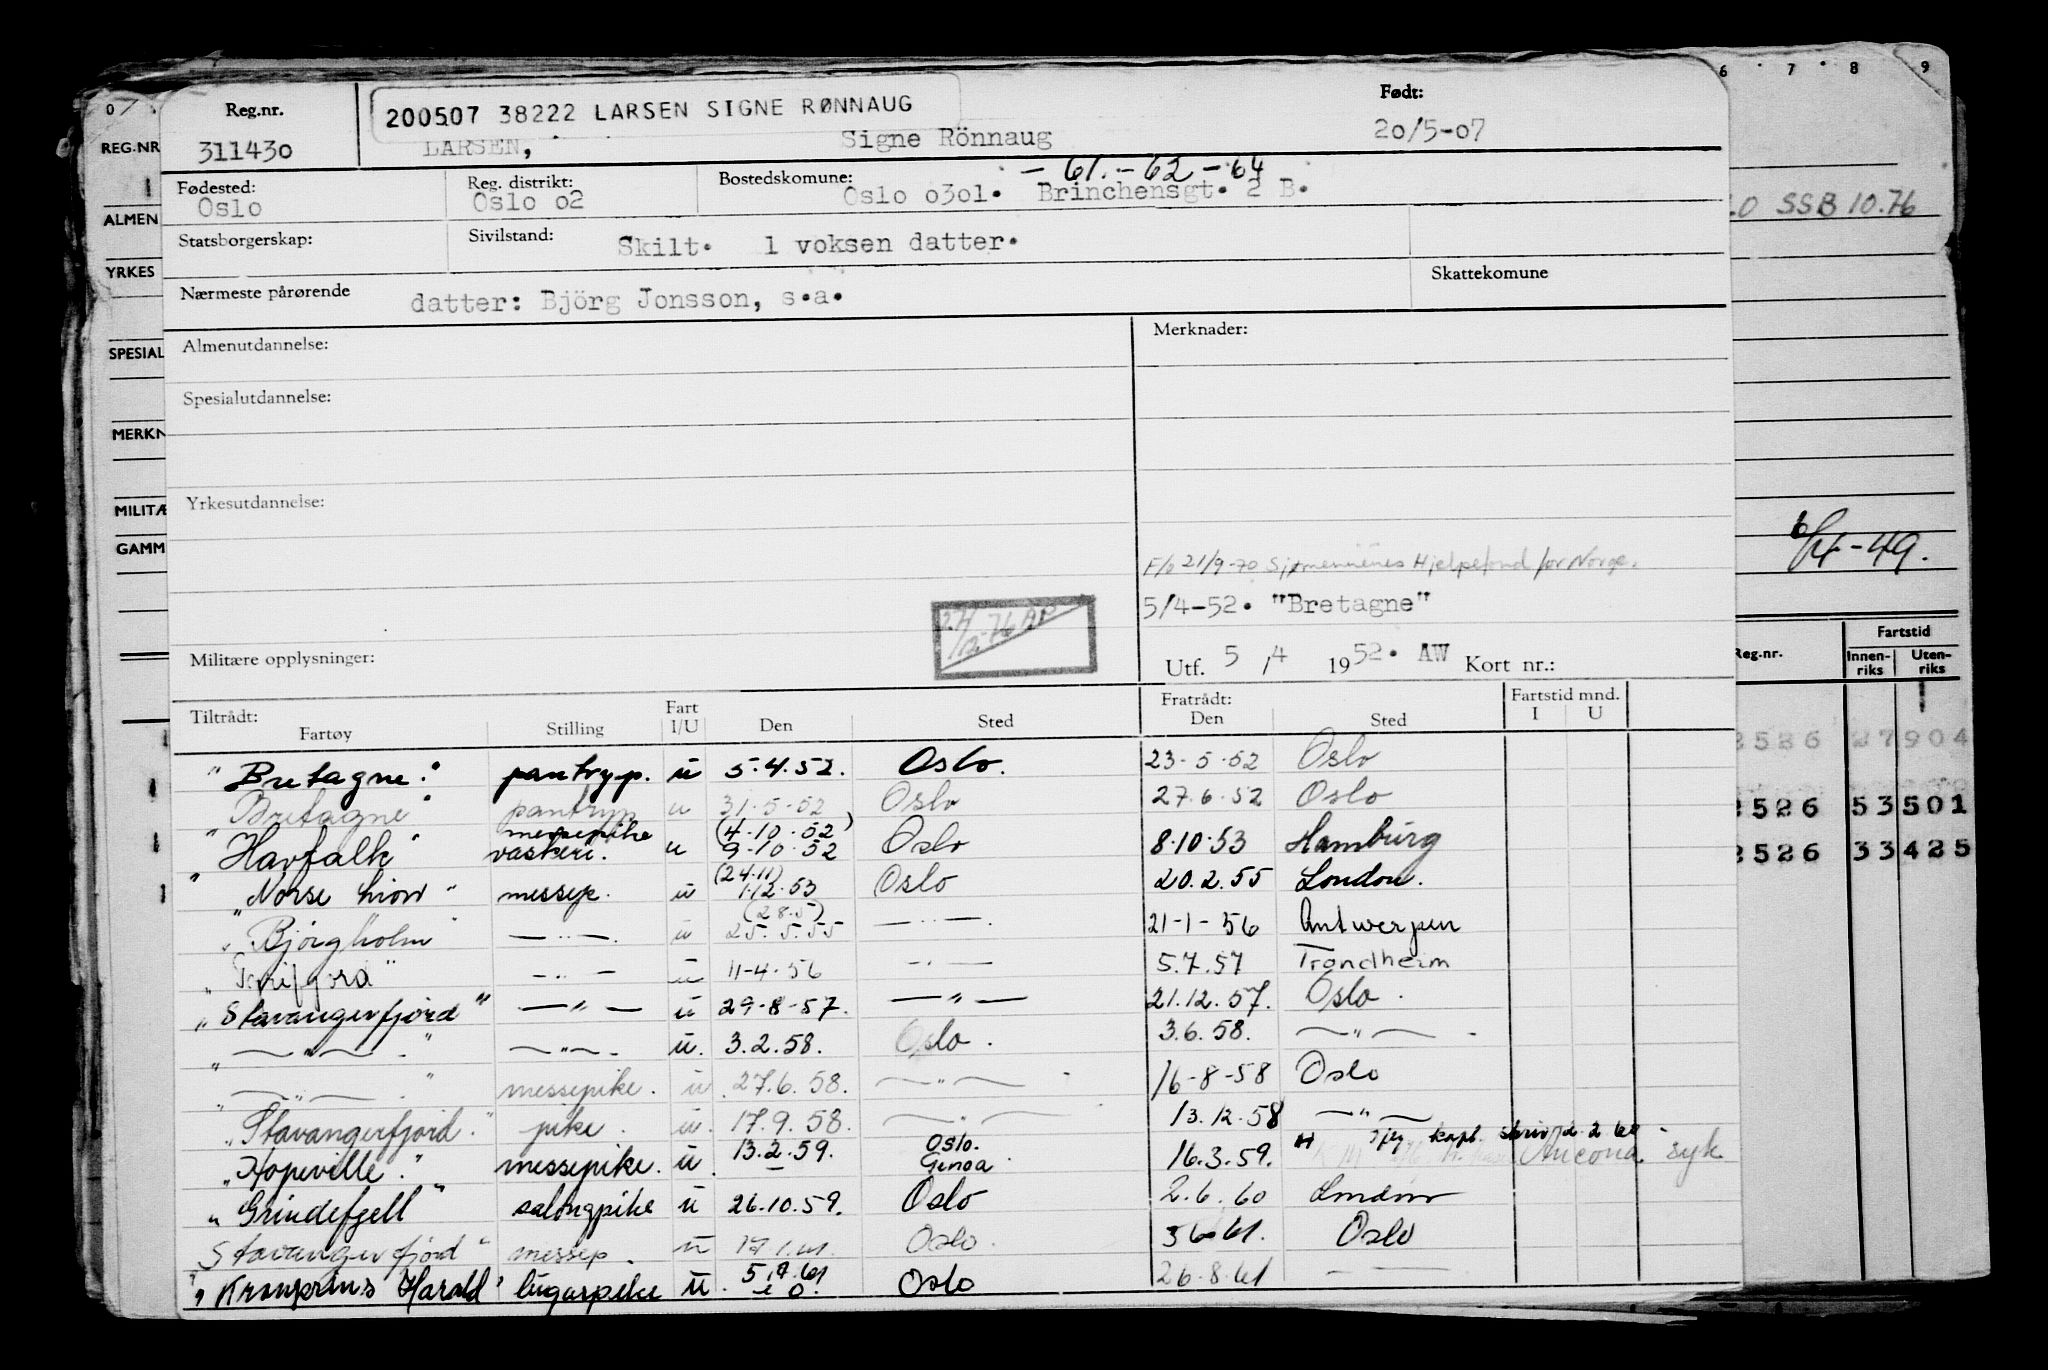 6 7 8 9
0
REG.NR
ALMEN
YRKES
SPESIAL
MERKN
MILITÆ
GAMM
Reg.nr.
311430
200507 38222 LARSEN SIGNE RØNNAUG
LARSEN, Signe Rönnaug
Født:
20/5-07
Fødested:
Oslo
Reg. distrikt:
Oslo o2
Bostedskomune: - 61. - 62 - 64
Oslo o3o1. Brinchensgt. 2 B.
SSB 10.76
Statsborgerskap:
Sivilstand:
Skilt. 1 voksen datter.
Nærmeste pårørende
datter: Björg Jonsson, s.a.
Skattekomune
Almenutdannelse:
Merknader:
Spesialutdannelse:
Yrkesutdannelse:
6/4-49.
F/o 21/9-70 Sjømennenes Hjelpefond for Norge.
5/4-52. "Bretagne"
Militære opplysninger:
Utf. 5 / 4 1952. AW Kort nr.:
Reg.nr. Fartstid
Innen-riks Uten-riks
2526 27904
2526 53501
2526 33425
Tiltrådt: Fart Fratrådt: Fartstid mnd.
Fartøy Stilling I/U Den Sted Den Sted I U
"Bretagne" pantryp. u 5.4.52. Oslo. 23-5-52 Oslo
"Bretagne" pantryp u 31-5-52 Oslo 27.6.52 Oslo
messepike (4-10-52)
"Havfalk" vaskeri. u 9-10-52 Oslo 8.10.53 Hamburg
(24.11)
"Norse Lion" messep. u 1.12.53 Oslo 20.2.55 London.
(28.5)
"Bjørgholm" — " — . u 25.5.55 — " — . 21-1-56 Antwerpen
— " — u 11-4-56 — " — 5.7.57 Trondheim
"Stavangerfjord" — " — u 29-8-57. — " — 21.12.57. Oslo.
" — " — " — " — . u. 3.2.58. Oslo. 3.6.58. — " —
" — " — " messepike. u. 27.6.58. — " — 16-8-58 Oslo
"Stavangerfjord" pike. u. 17.9.58. — " — 13.12.58 — " —
"Hopeville." messepike. u. 13.2.59. Oslo. Genoa. 16.3.59. Ancona. syk
"Grindefjell" salongpike u 26.10.59. Oslo 2.6.60 London
Stavangerfjord" messep. u Oslo. Oslo
"Kronprins Harald" lugarpike u. 5.7.61 Oslo 26.8.61 — —